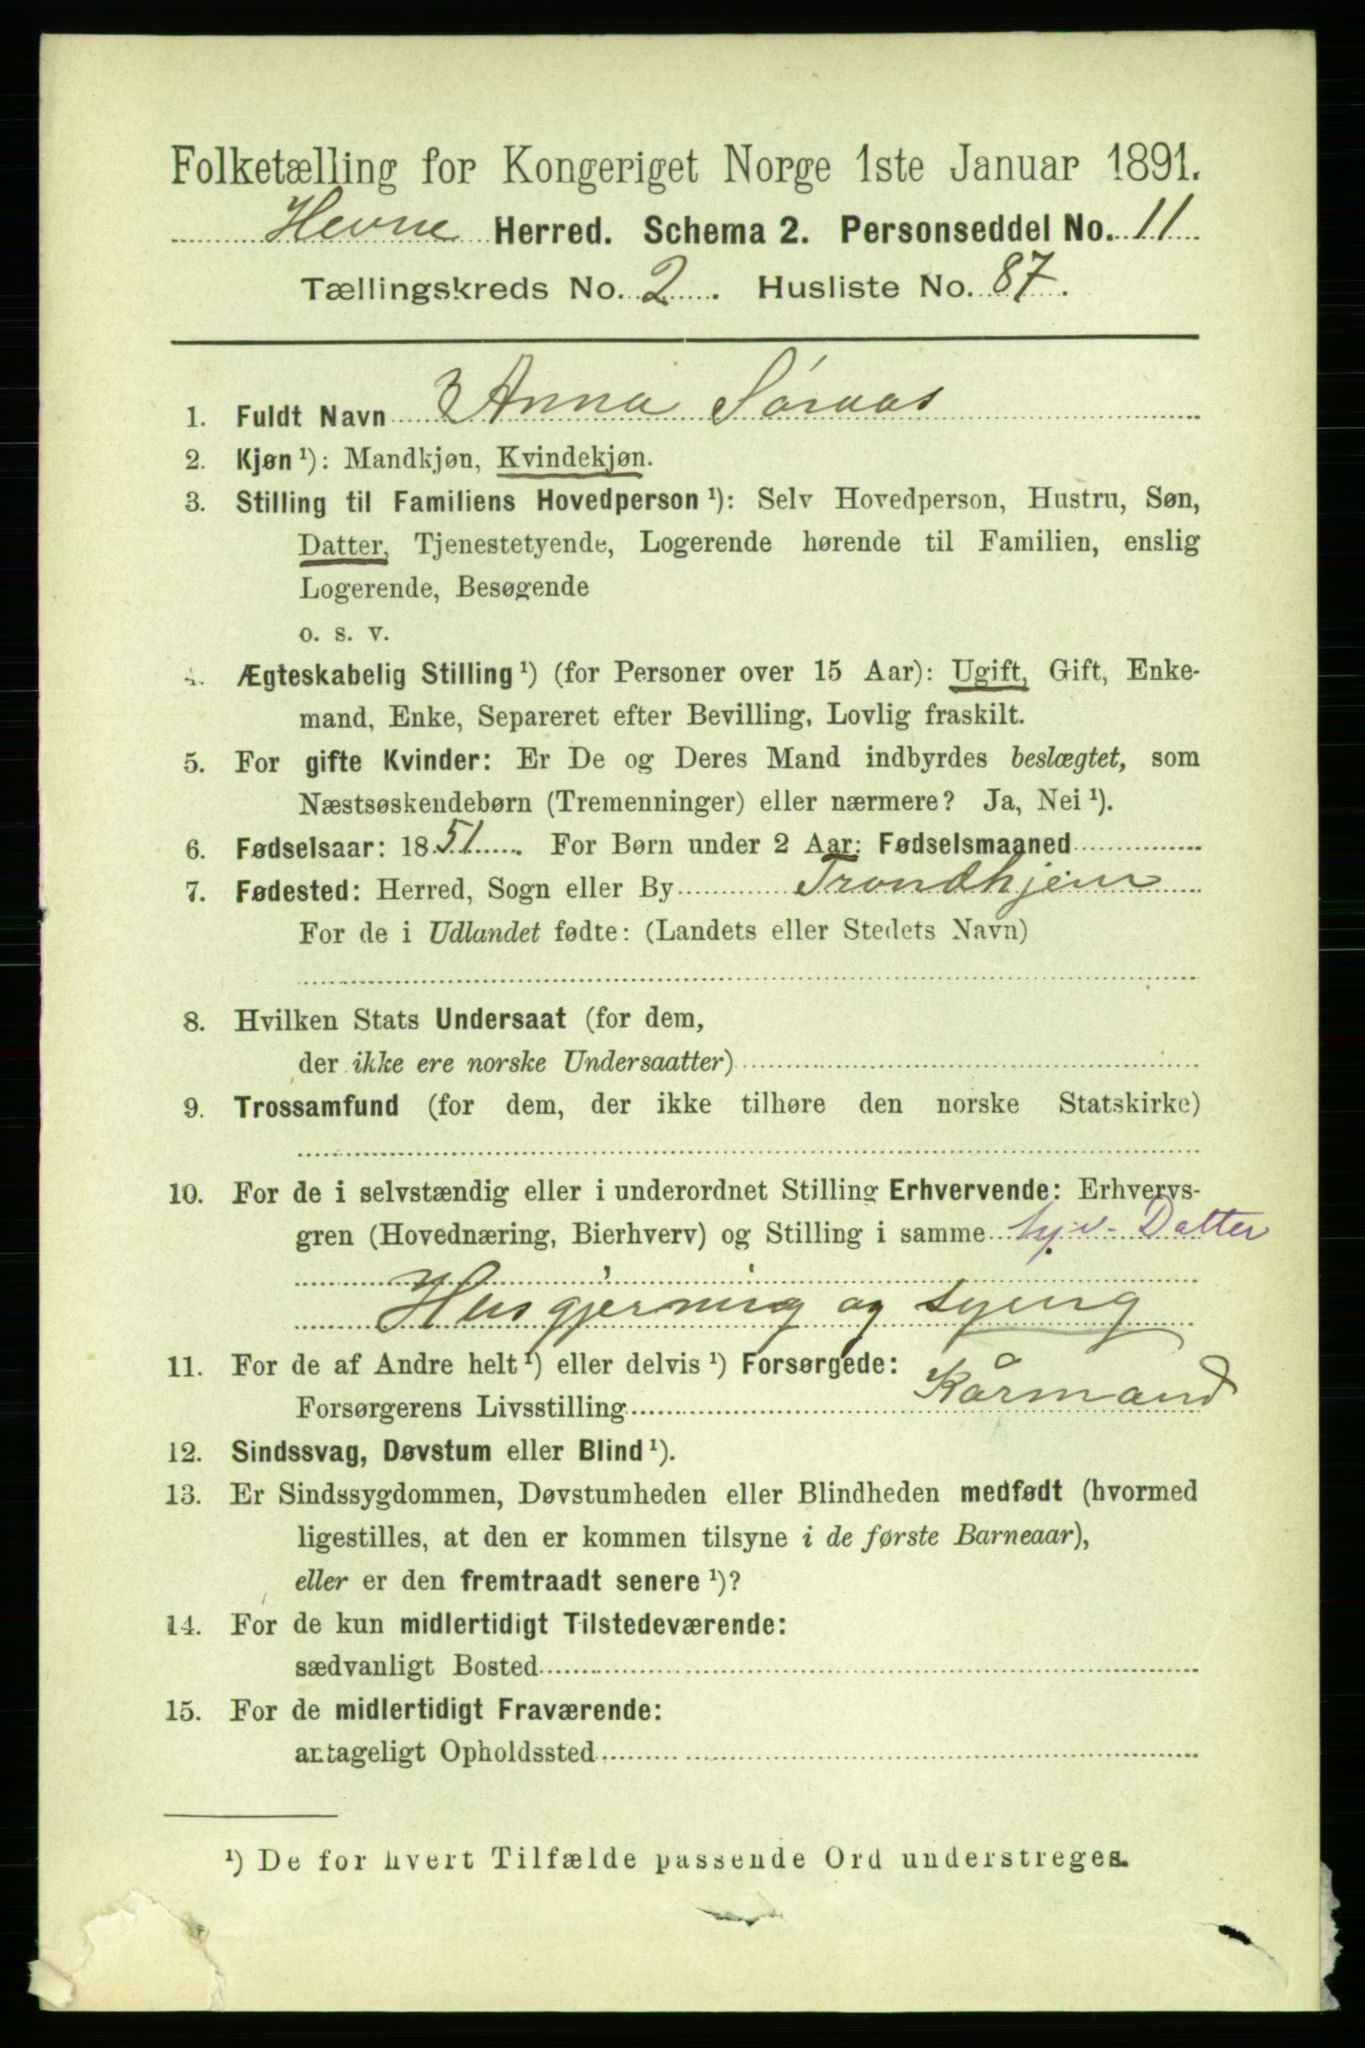 Folketælling for Kongeriget Norge 1ste Januar 1891.
Hevne Herred. Schema 2. Personseddel No. 11
Tællingskreds No. 2. Husliste No. 87.
1. Fuldt Navn Anna Søraas
2. Kjøn ¹): Mandkjøn, Kvindekjøn.
3. Stilling til Familiens Hovedperson ¹): Selv Hovedperson, Hustru, Søn,
Datter, Tjenestetyende, Logerende hørende til Familien, enslig
Logerende, Besøgende
o. s. v.
4. Ægteskabelig Stilling ¹) (for Personer over 15 Aar): Ugift, Gift, Enke-
mand, Enke, Separeret efter Bevilling, Lovlig fraskilt.
5. For gifte Kvinder: Er De og Deres Mand indbyrdes beslægtet, som
Næstsøskendebørn (Tremenninger) eller nærmere? Ja, Nei ¹).
6. Fødselsaar: 1851. For Børn under 2 Aar: Fødselsmaaned
7. Fødested: Herred, Sogn eller By Trondhjem
For de i Udlandet fødte: (Landets eller Stedets Navn)
8. Hvilken Stats Undersaat (for dem,
der ikke ere norske Undersaatter)
9. Trossamfund (for dem, der ikke tilhøre den norske Statskirke)
10. For de i selvstændig eller i underordnet Stilling Erhvervende: Erhvervs-
gren (Hovednæring, Bierhverv) og Stilling i samme Datter
Husgjerning og syeing
11. For de af Andre helt ¹) eller delvis ¹) Forsørgede:
Forsørgerens Livsstilling Kårmand
12. Sindssvag, Døvstum eller Blind ¹).
13. Er Sindssygdommen, Døvstumheden eller Blindheden medfødt (hvormed
ligestilles, at den er kommen tilsyne i de første Barneaar),
eller er den fremtraadt senere ¹)?
14. For de kun midlertidigt Tilstedeværende:
sædvanligt Bosted
15. For de midlertidigt Fraværende:
antageligt Opholdssted
¹) De for hvert Tilfælde passende Ord understreges.